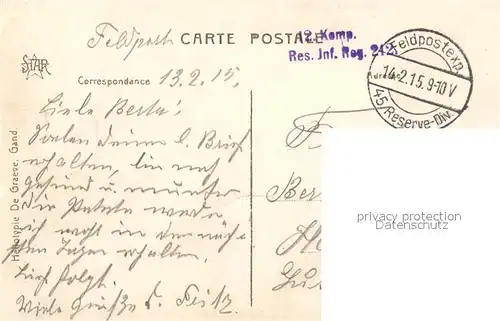 Feldpost CARTE POSTALE
12. Komp.
Res. Inf. Reg. 242.
Feldpostexp.
14.2.15. 9-10V
45 Reserve-Div.
STAR
Correspondance
13.2.15.
Liebe Berta!
Soeben deinen l. Brief
erhalten, bin noch
gesund u. munter
die Pakete werde
ich wohl in den näch-
sten Tagen erhalten.
Brief folgt.
Viele Grüße
Heliotypie De Graeve, Gand.
privacy protection
Datenschutz